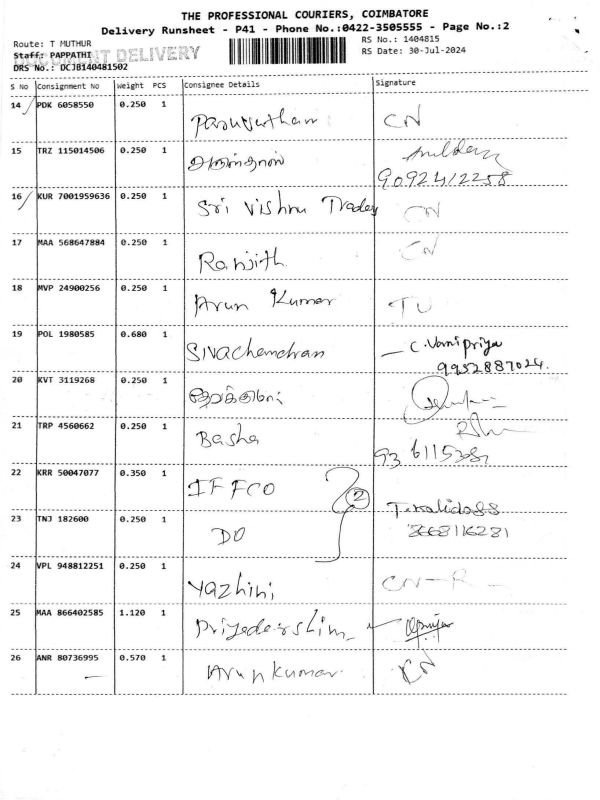 THE PROFESSIONAL COURIERS, COIMBATORE
Delivery Runsheet - P41 - Phone No.:0422-3505555 - Page No.:2
Route: T MUTHUR
RS No.: 1404815
Staff: PAPPATHI
RS Date: 30-Jul-2024
DOCUMENT DELIVERY
DRS No.: DCJB140481502
S No Consignment No Weight PCS Consignee Details Signature
14 PDK 6058550 0.250 1 CN
15 TRZ 115014506 0.250 1 அருள்தாஸ்
9092412258
16 KUR 7001959636 0.250 1 Sri Vishnu Traders CN
17 MAA 568647884 0.250 1 Ranjith CN
18 MVP 24900256 0.250 1 Arun Kumar TU
19 POL 1980585 0.680 1 Sivachandran C. Vanipriya
9952887024.
20 KVT 3119268 0.250 1
21 TRP 4560662 0.250 1 Basha
22 KRR 50047077 0.350 1 IFFCO 2
23 TNJ 182600 0.250 1 DO
8668116281
24 VPL 948812251 0.250 1 Yazhini CN-R-
25 MAA 866402585 1.120 1
26 ANR 80736995 0.570 1 Arunkumar CN